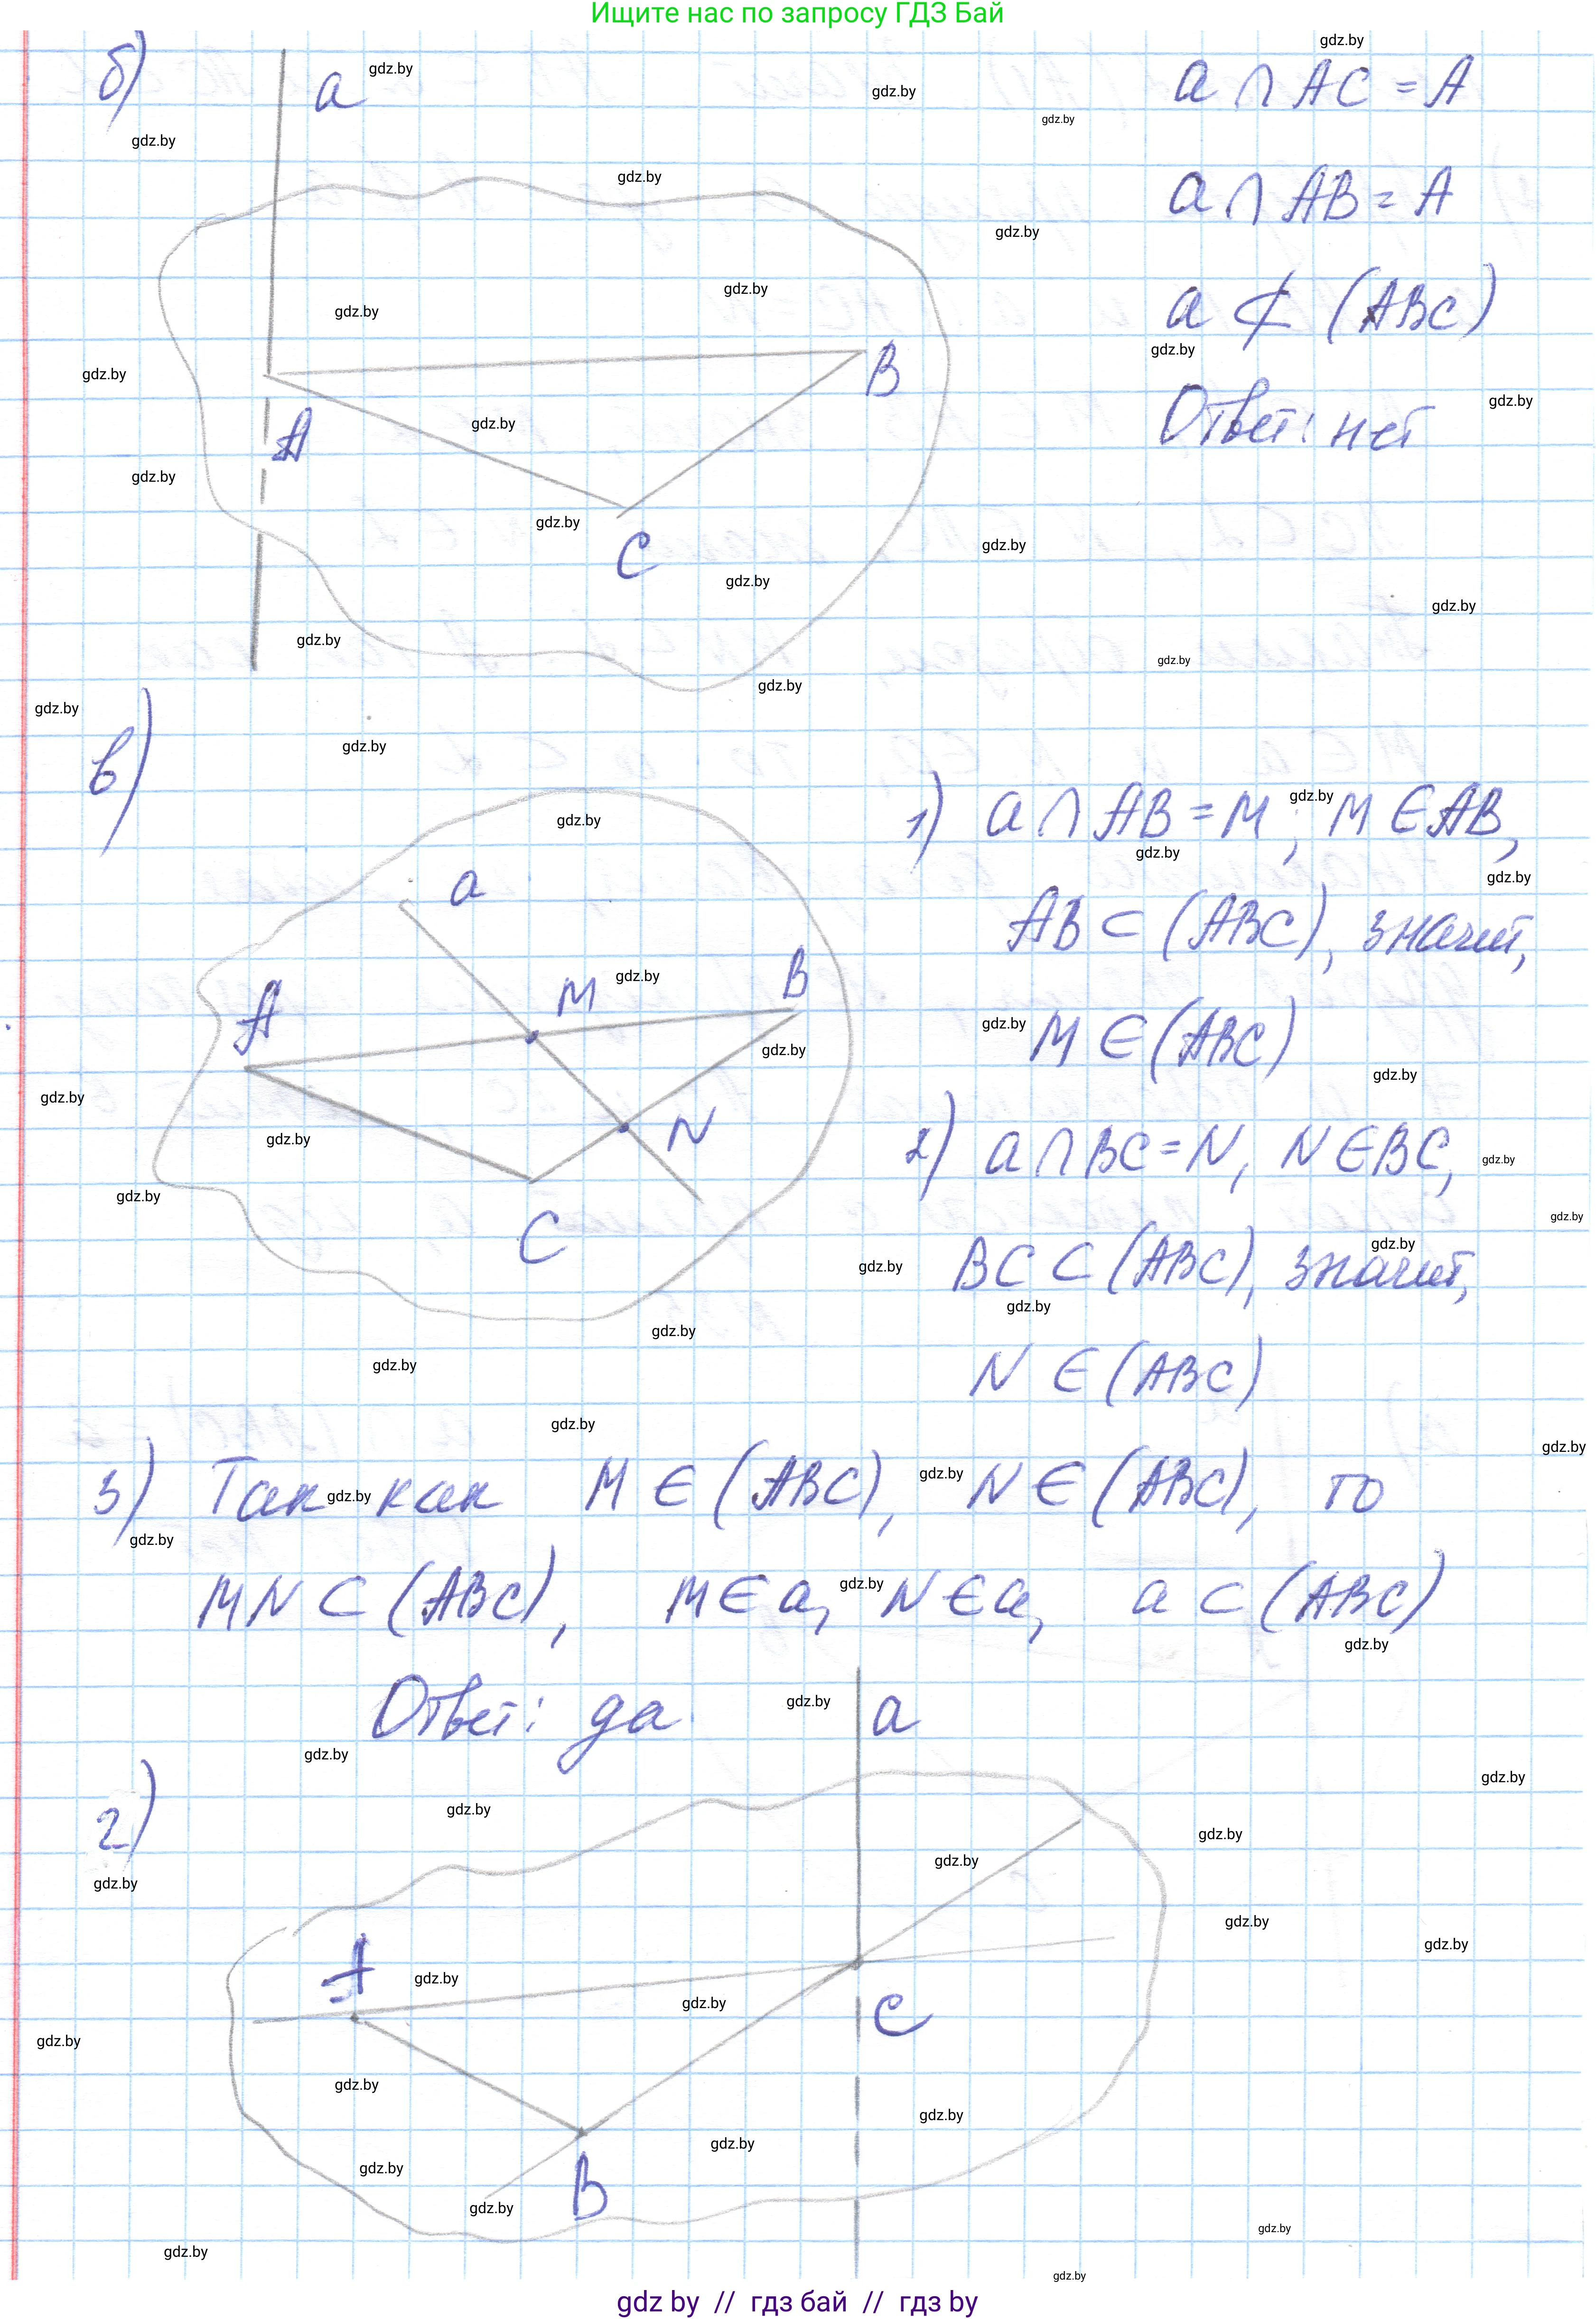 Ищите нас по запросу ГДЗ Бай
б)
a
a ∩ AC = A
a ∩ AB = A
a ⊄ (ABC)
Ответ: нет
A
B
C
в)
a
A
M
B
N
C
1) a ∩ AB = M; M ∈ AB,
AB ⊂ (ABC), значит,
M ∈ (ABC)
2) a ∩ BC = N, N ∈ BC,
BC ⊂ (ABC), значит,
N ∈ (ABC)
3) Так как M ∈ (ABC), N ∈ (ABC), то
MN ⊂ (ABC), M ∈ a, N ∈ a, a ⊂ (ABC)
Ответ: да.
г)
a
A
C
B
gdz by // гдз бай // гдз by